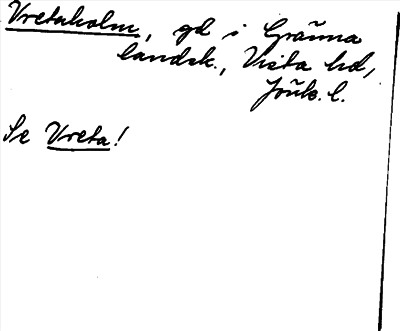 Vretaholm, gd i Gränna
landsk., Vista hd,
Jönk. l.
Se Vreta!